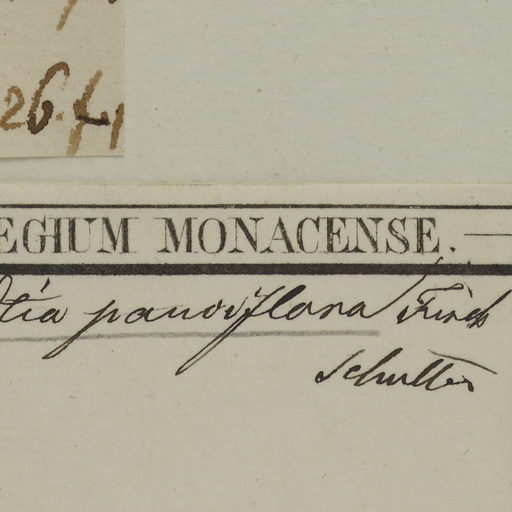 26.
EGIUM MONACENSE.
tia pauciflora
Schultes